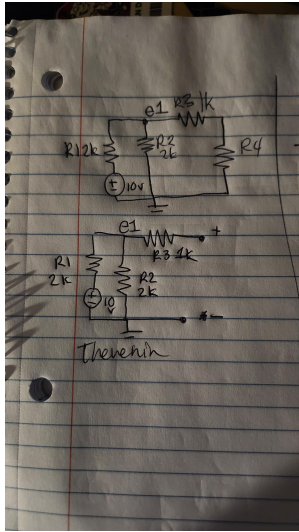 e1 R3 1k
R1 2k R2 2k R4
± 10v
e1 +
R3 1k
R1 2k R2 2k
± 10 v
-
Thevenin